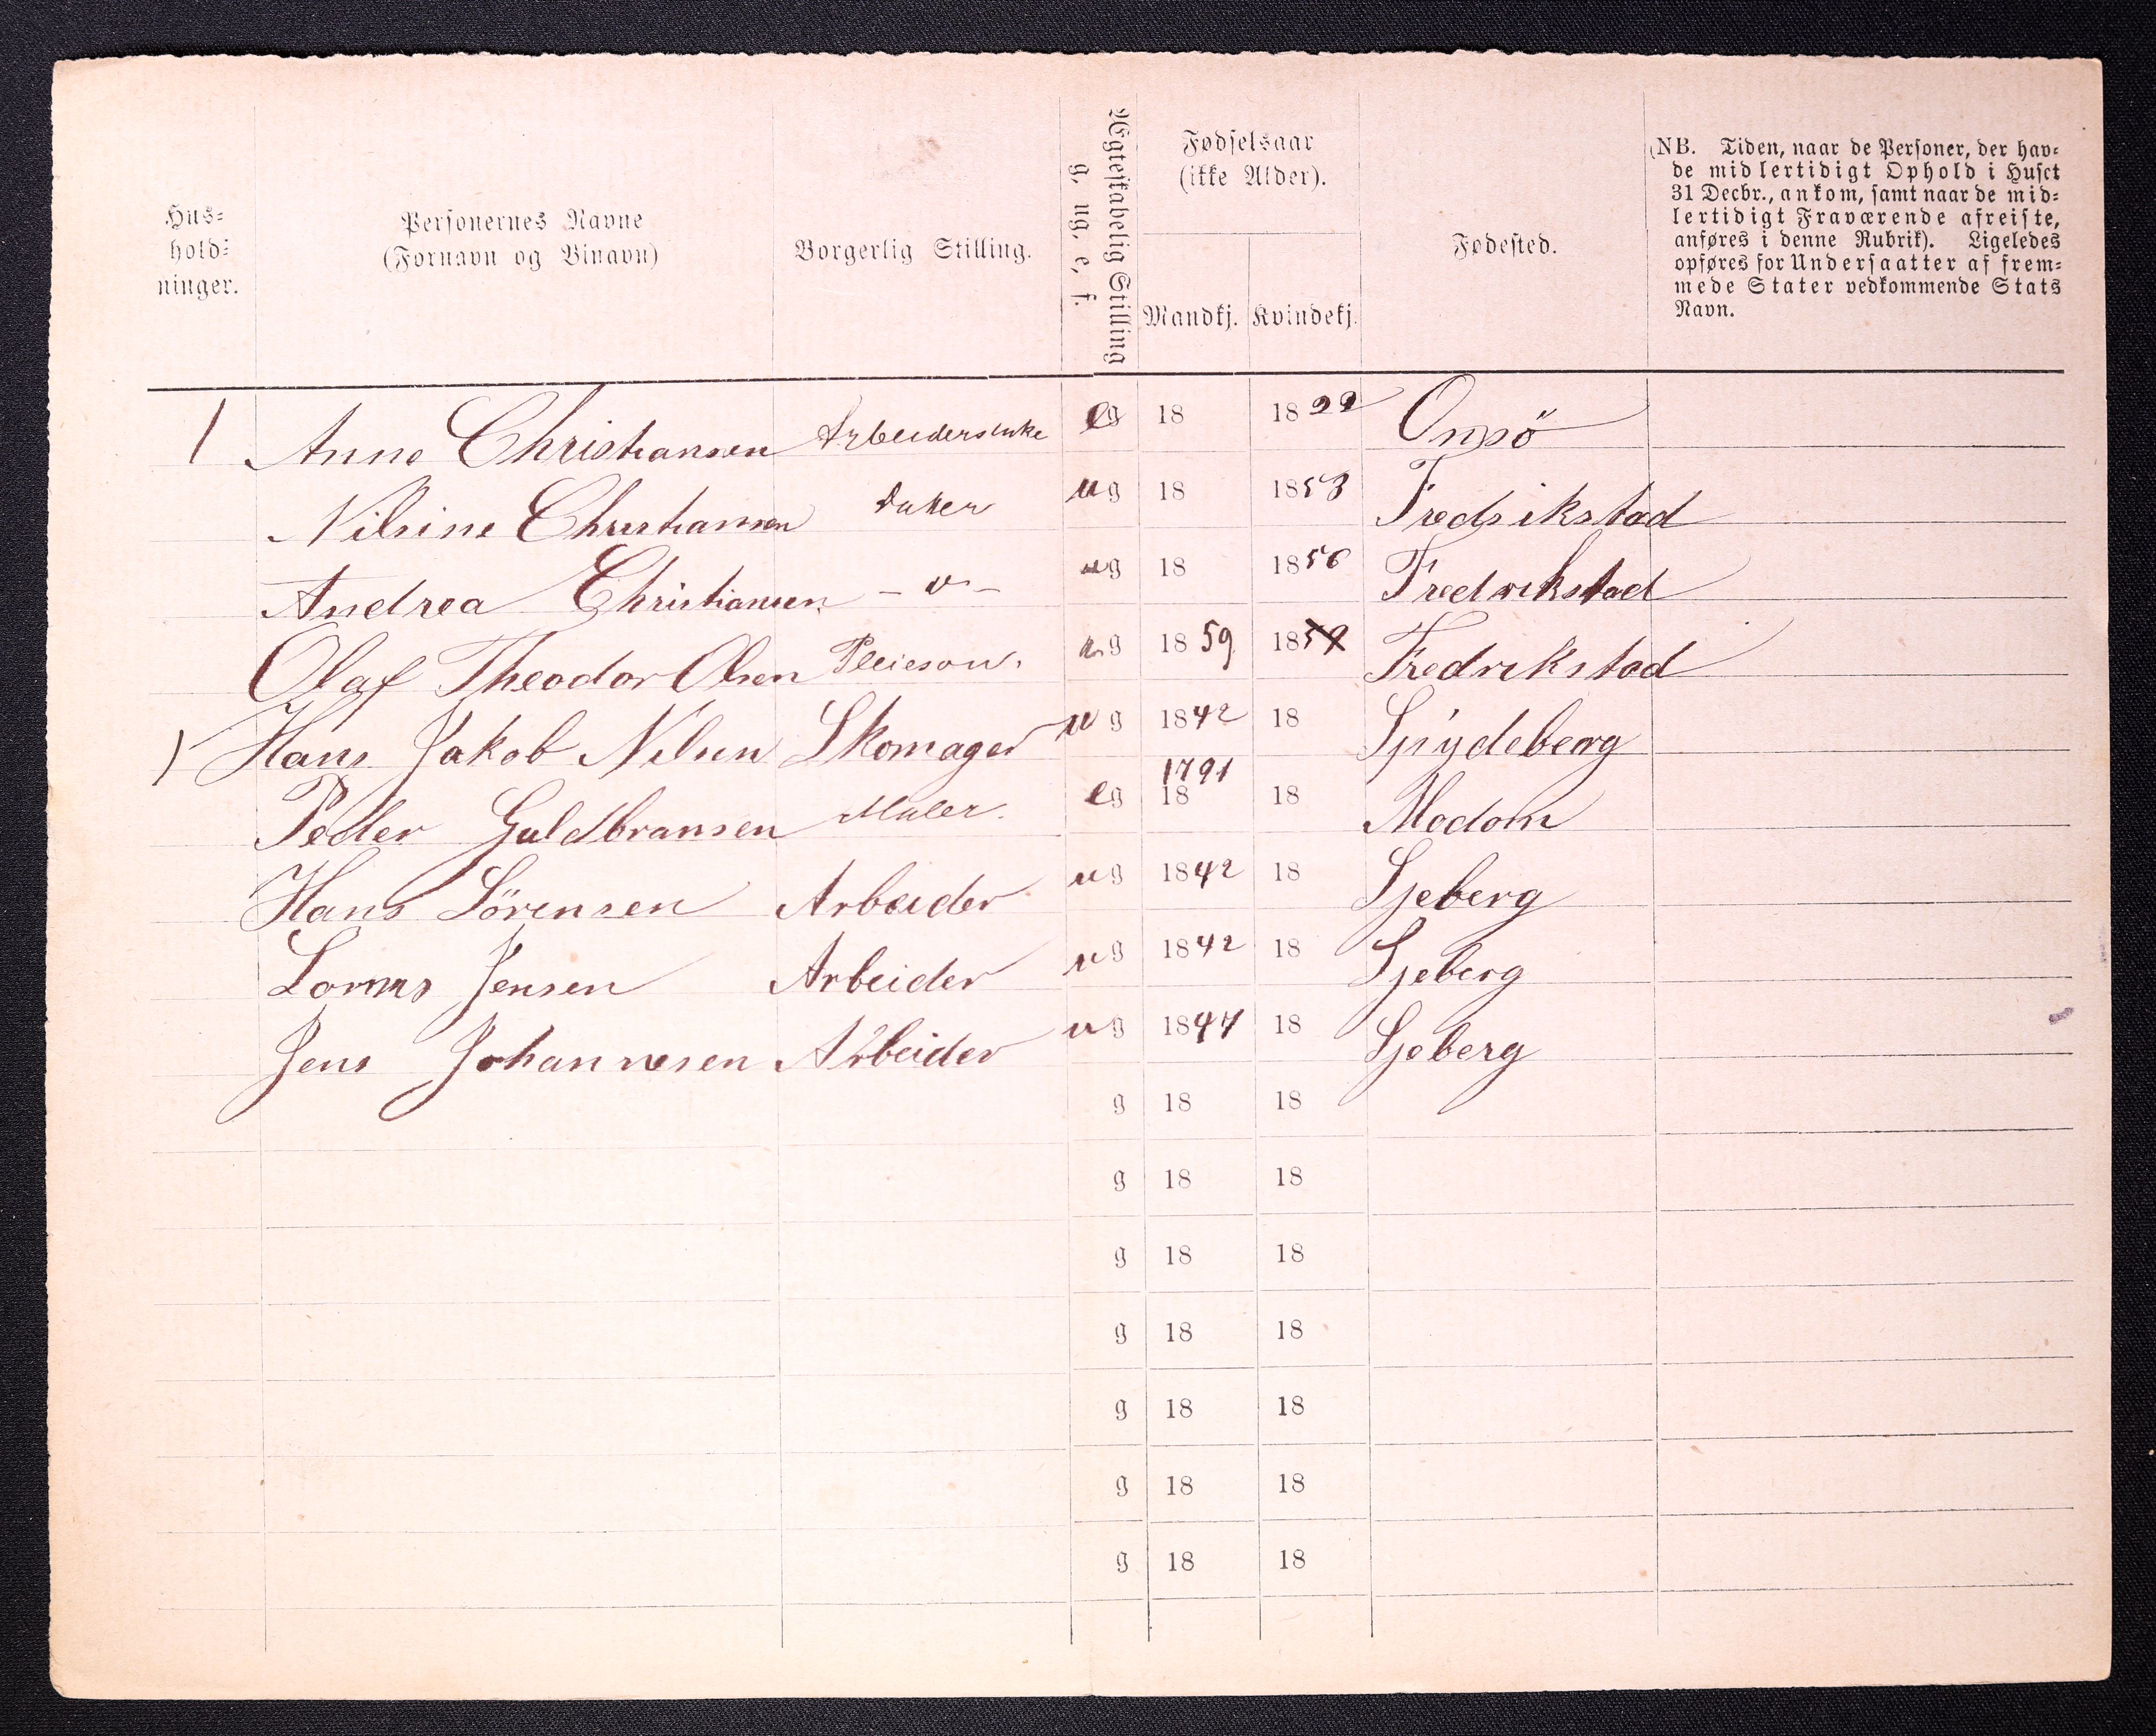 Hus-
hold-
ninger.
Personernes Navne
(Fornavn og Vinavn)
Borgerlig Stilling.
Ægteskabelig Stilling
g, ug, e, f.
Fødselsaar
(ikke Alder).
Mandkj. Kvindekj.
Fødested.
(NB. Tiden, naar de Personer, der hav-
de midlertidigt Ophold i Huset
31 Decbr., ankom, samt naar de mid-
lertidigt Fraværende afreiste,
anføres i denne Rubrik). Ligeledes
opføres for Undersaatter af frem-
mede Stater vedkommende Stats
Navn.
1 Anne Christiansen Arbeiderenke eg 18 1822 Onsö
Nilsine Christiansen Datter ug 18 1853 Fredrikstad
Andrea Christiansen - " - ug 18 1856 Fredrikstad
Olaf Theodor Olsen Pleieson. ug 1859 18 Fredrikstad
1 Hans Jakob Nilsen Skomager ug 1842 18 Spydeberg
Peder Guldbransen Maler eg 1791 18 18 Modom
Hans Sörensen Arbeider ug 1842 18 Sjeberg
Jensen Arbeider ug 1842 18 Sjeberg
Jens Johannesen Arbeider ug 1844 18 Sjeberg
g 18 18
g 18 18
g 18 18
g 18 18
g 18 18
g 18 18
g 18 18